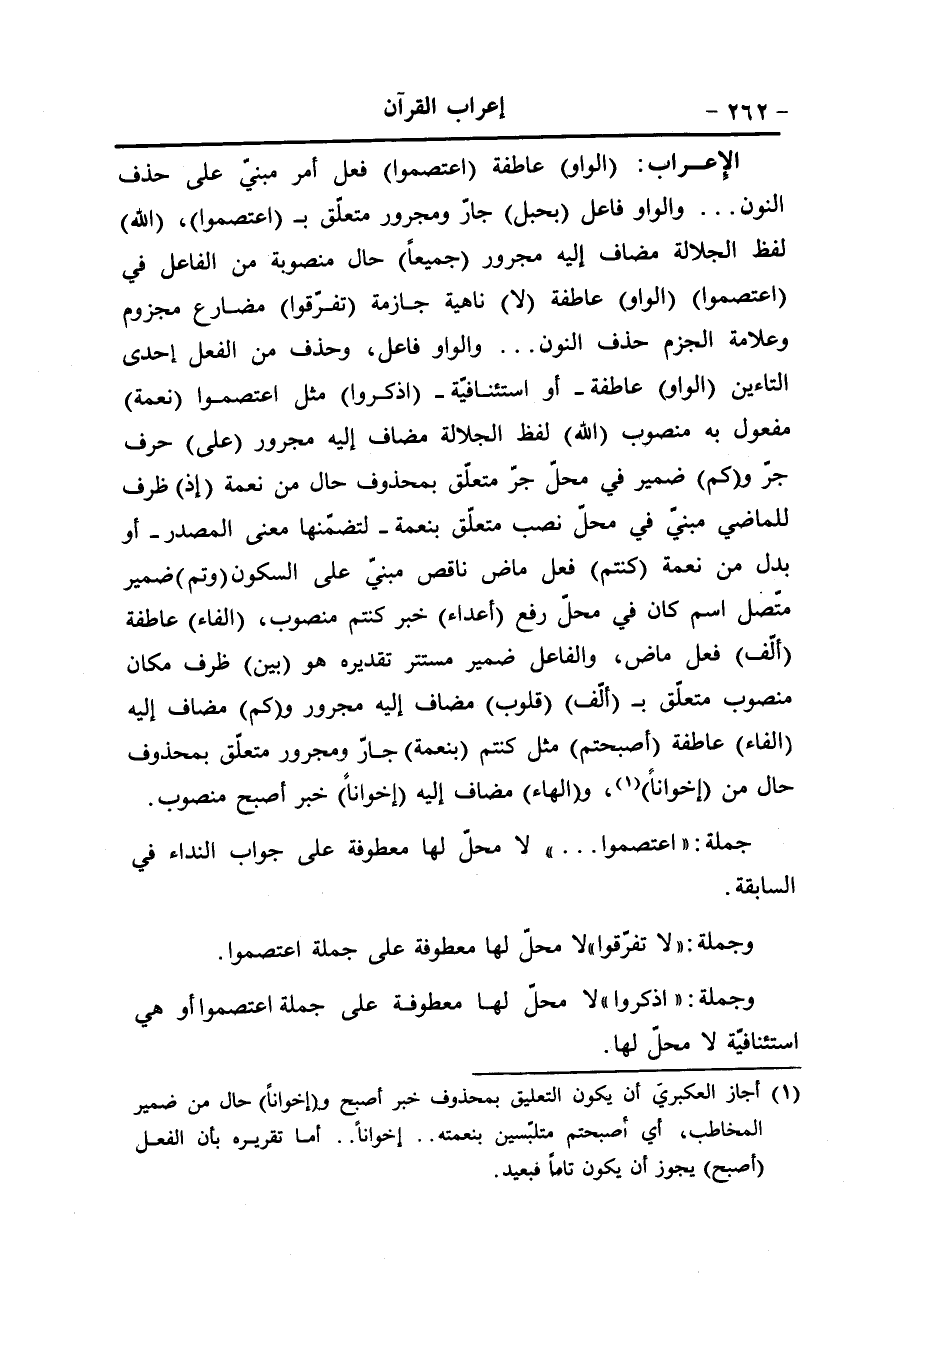 - ٢٦٢ - إعراب القرآن
الإعـراب: (الواو) عاطفة (اعتصموا) فعل أمر مبنيّ على حذف
النون... والواو فاعل (بحبل) جارّ ومجرور متعلّق بـ (اعتصموا)، (الله)
لفظ الجلالة مضاف إليه مجرور (جميعاً) حال منصوبة من الفاعل في
(اعتصموا) (الواو) عاطفة (لا) ناهية جـازمة (تفـرّقوا) مضـارع مجزوم
وعلامة الجزم حذف النون... والواو فاعل، وحذف من الفعل إحدى
التاءين (الواو) عاطفة - أو استئنـافيّة - (اذكـروا) مثل اعتصمـوا (نعمة)
مفعول به منصوب (الله) لفظ الجلالة مضاف إليه مجرور (على) حرف
جرّ و(كم) ضمير في محلّ جرّ متعلّق بمحذوف حال من نعمة (إذ) ظرف
للماضي مبنيّ في محلّ نصب متعلّق بنعمة - لتضمّنها معنى المصدر - أو
بدل من نعمة (كنتم) فعل ماض ناقص مبنيّ على السكون (وتم) ضمير
متّصل اسم كان في محلّ رفع (أعداء) خبر كنتم منصوب، (الفاء) عاطفة
(ألّف) فعل ماض، والفاعل ضمير مستتر تقديره هو (بين) ظرف مكان
منصوب متعلّق بـ (ألّف) (قلوب) مضاف إليه مجرور و(كم) مضاف إليه
(الفاء) عاطفة (أصبحتم) مثل كنتم (بنعمة) جـارّ ومجرور متعلّق بمحذوف
حال من (إخواناً)(١)، و(الهاء) مضاف إليه (إخواناً) خبر أصبح منصوب.
جملة: «اعتصموا...» لا محلّ لها معطوفة على جواب النداء في
السابقة.
وجملة: «لا تفرّقوا» لا محلّ لها معطوفة على جملة اعتصموا.
وجملة: «اذكروا» لا محلّ لهـا معطوفـة على جملة اعتصموا أو هي
استئنافيّة لا محلّ لها.
(١) أجاز العكبريّ أن يكون التعليق بمحذوف خبر أصبح و(إخواناً) حال من ضمير
المخاطب، أي أصبحتم متلبّسين بنعمته.. إخواناً.. أمـا تقريـره بأن الفعـل
(أصبح) يجوز أن يكون تاماً فبعيد.